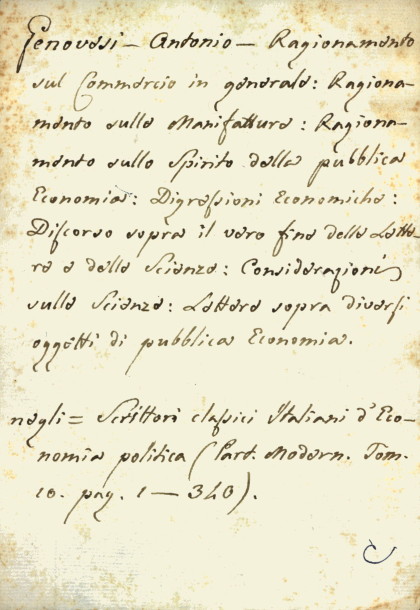 Genovesi — Antonio — Ragionamento
sul Commercio in generale: Ragiona-
mento sulle Manifatture: Ragiona-
mento sullo Spirito della pubblica
Economia: Digreſsioni Economiche:
Diſcorso sopra il vero fine delle Lette
re e delle Scienze: Considerazioni
sulle Scienze: Lettere sopra diverſi
oggetti di pubblica Economia.
negli = Scrittori claſsici Italiani d'Eco-
nomia politica (Part. Modern. Tom.
10. pag. 1 — 340).
C